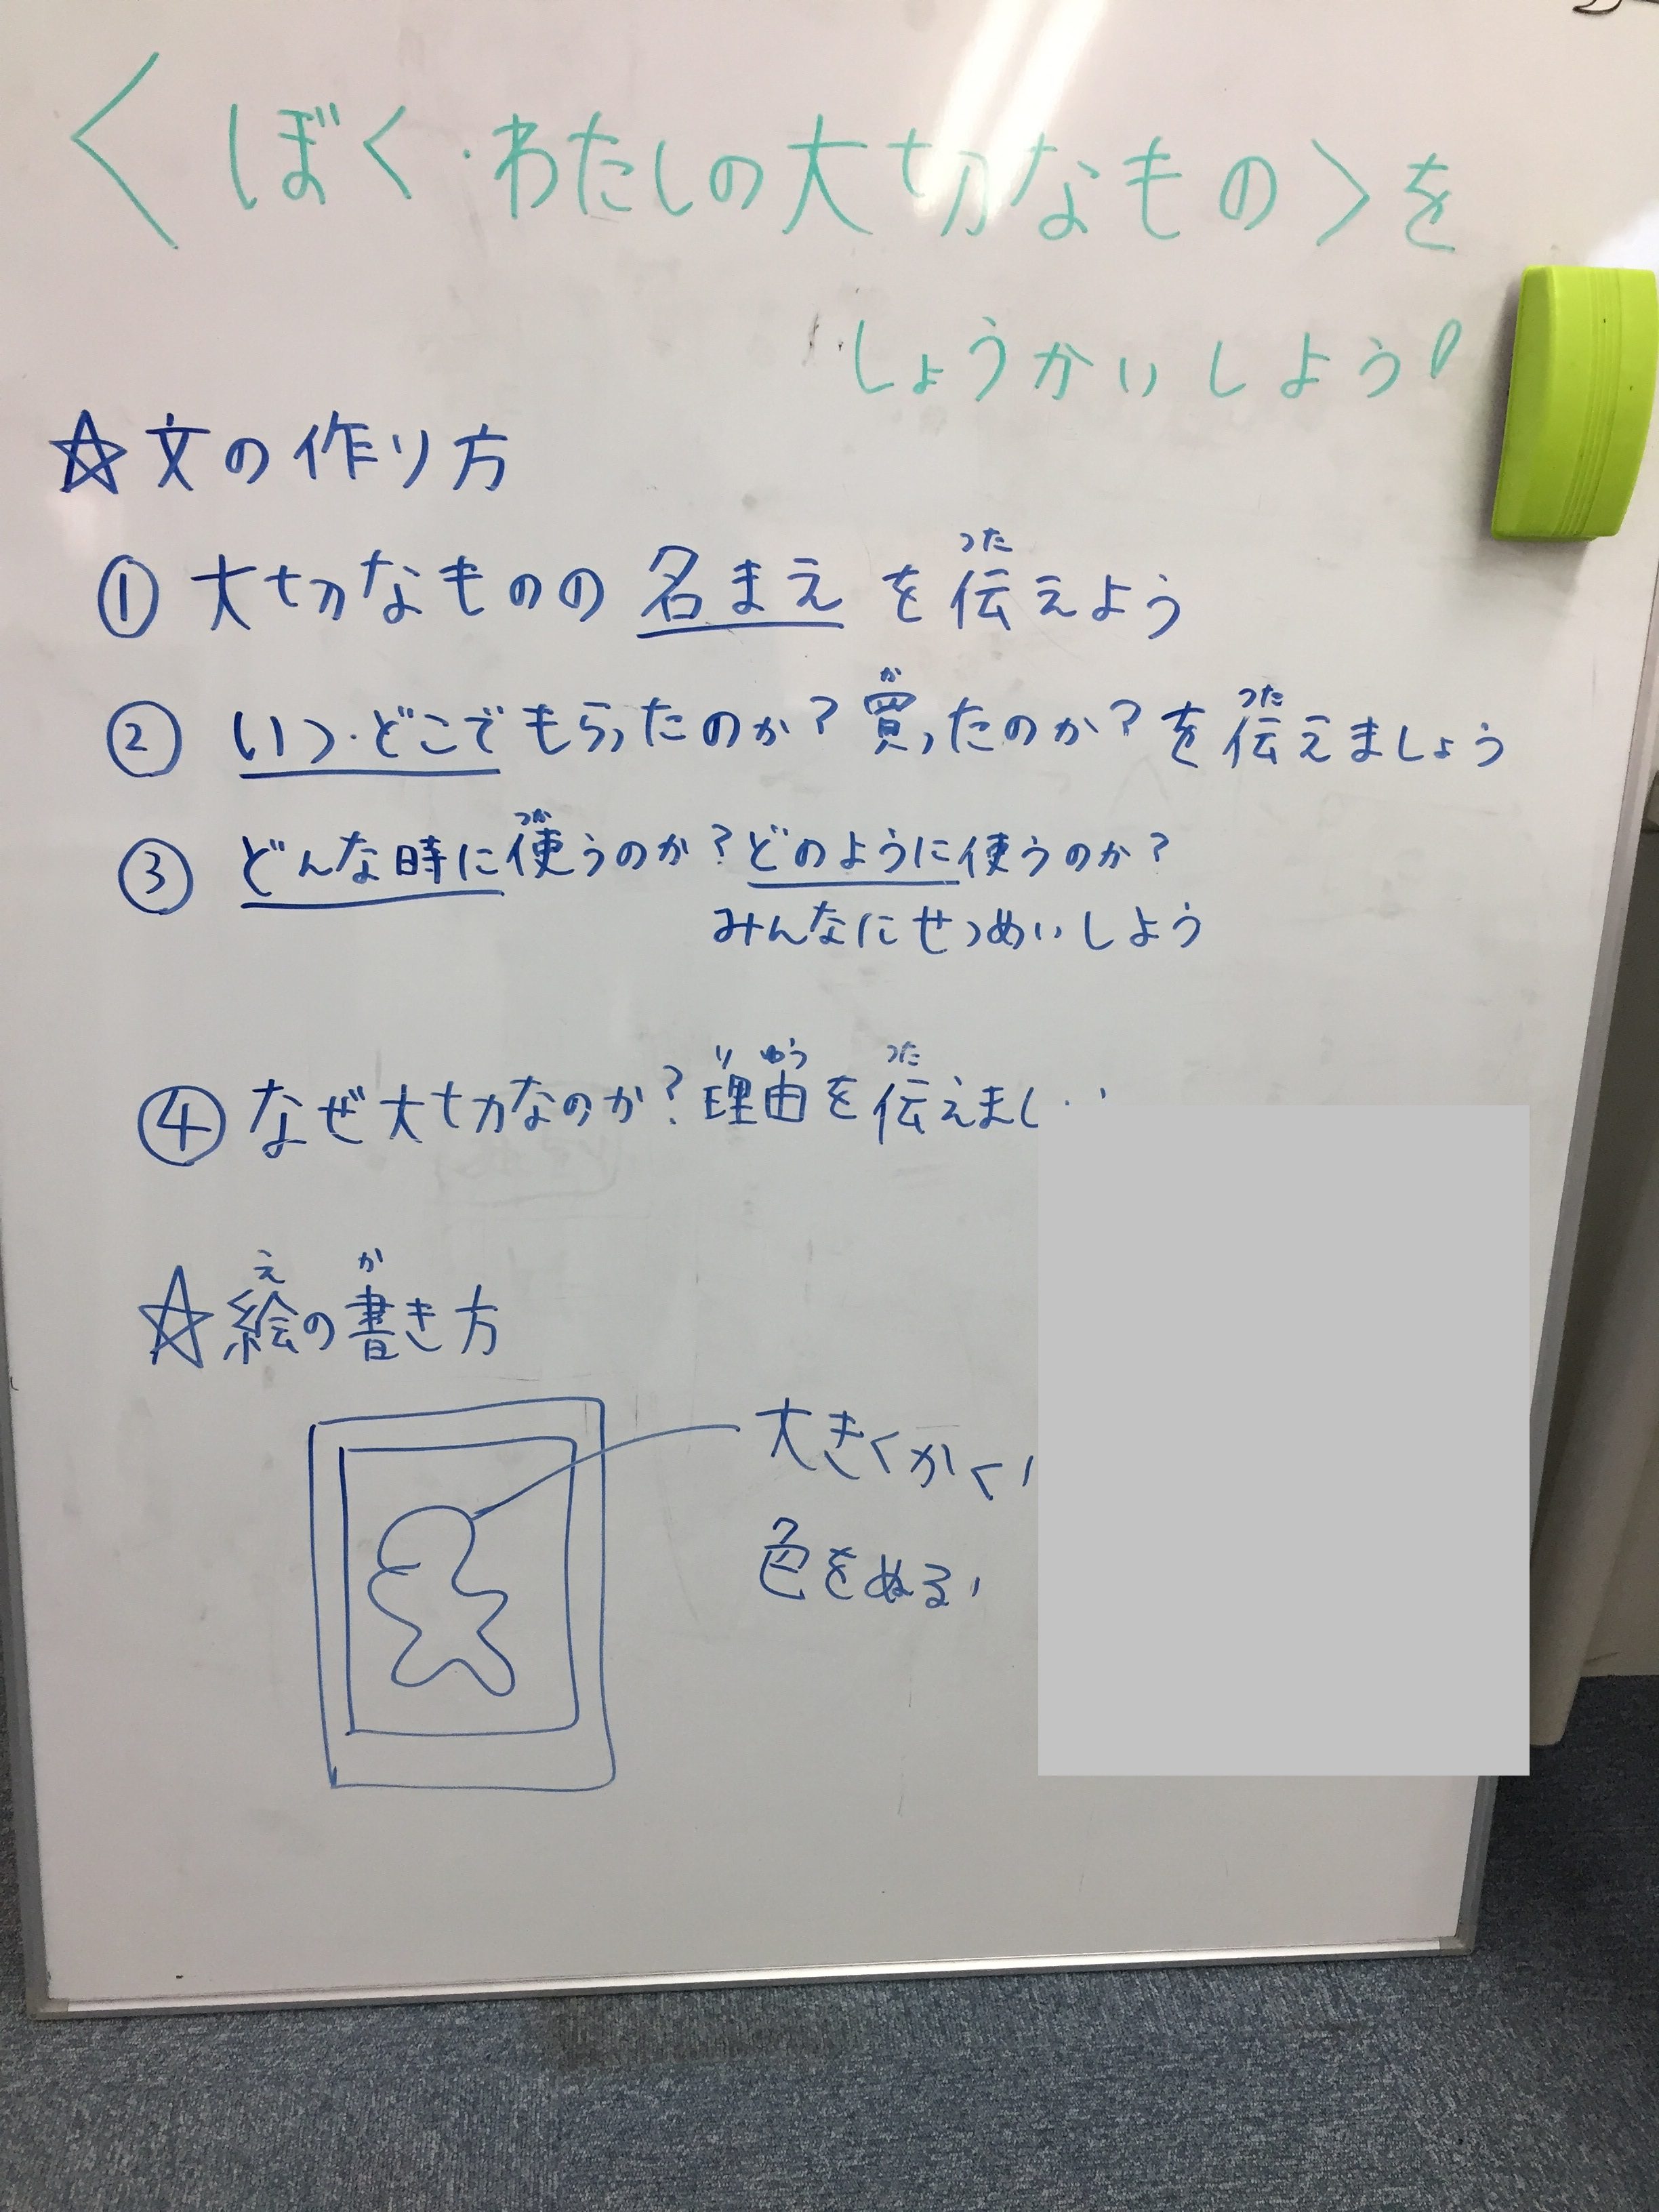 〈ぼく・わたしの大切なもの〉を
しょうかいしよう!
☆文の作り方
① 大切なものの名まえを伝えよう
つた
② いつ・どこでもらったのか?買ったのか?を伝えましょう
か つた
③ どんな時に使うのか?どのように使うのか?
つか
みんなにせつめいしよう
④ なぜ大切なのか?理由を伝えまし
り ゆう つた
☆絵の書き方
え か
大きくかく
色をぬる